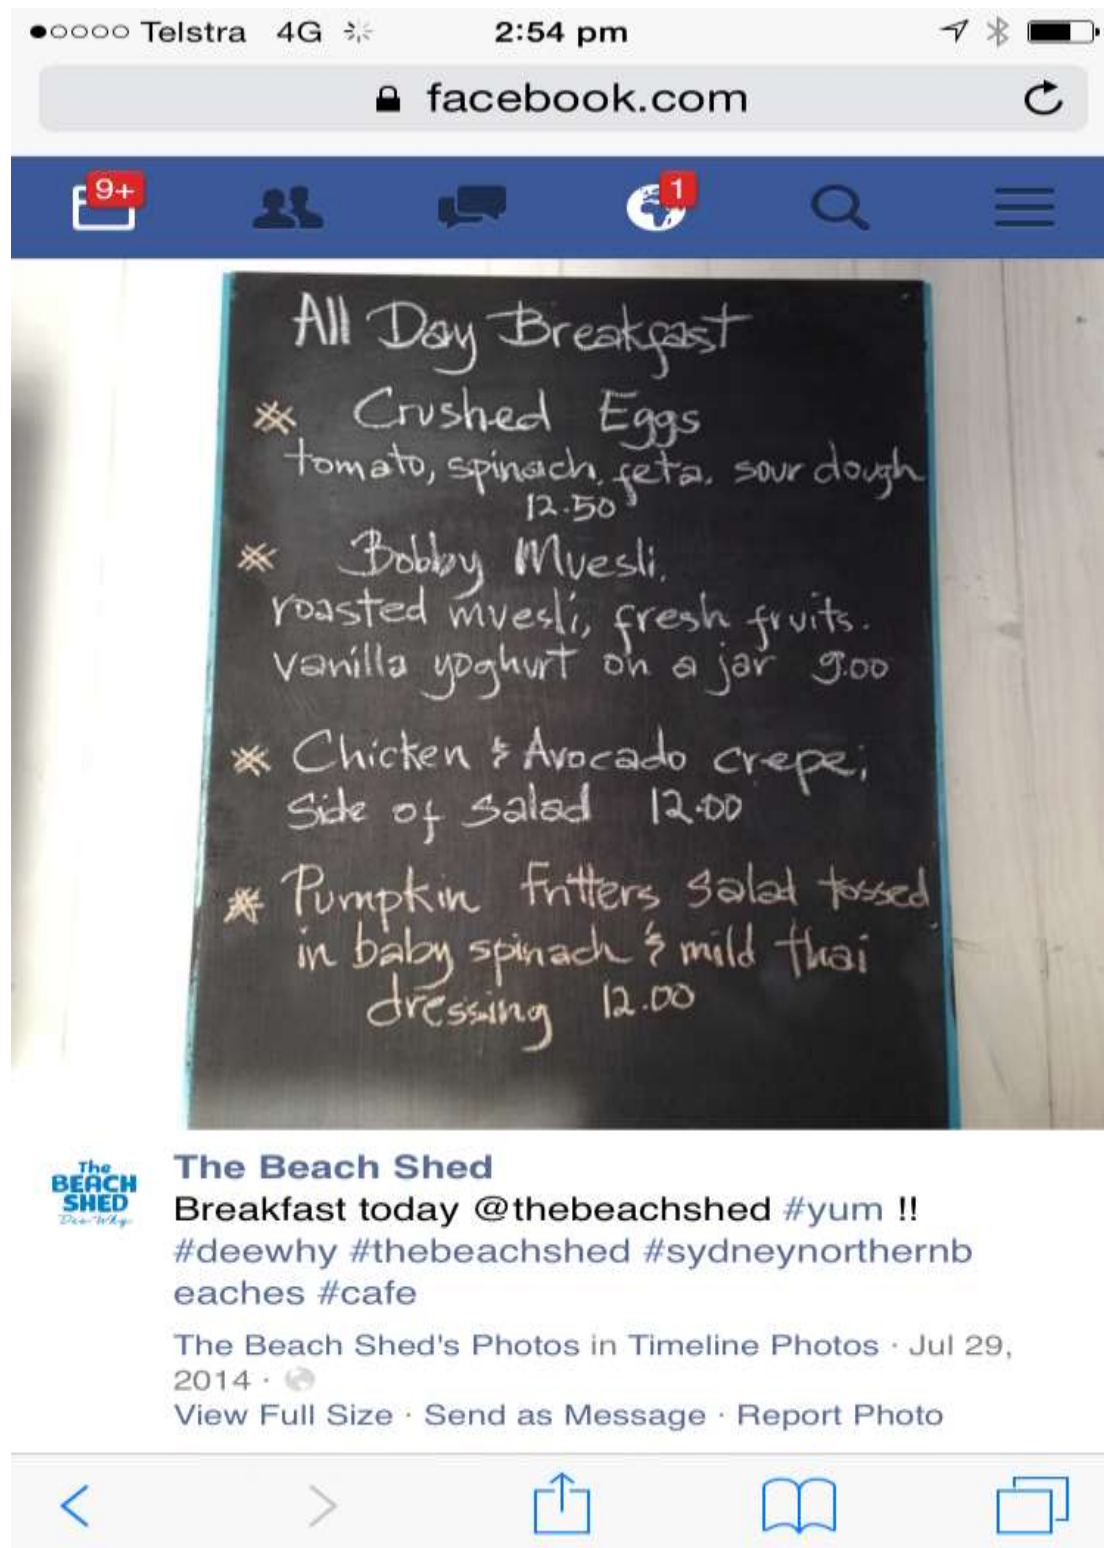 Telstra 4G 2:54 pm
facebook.com
9+ 1
All Day Breakfast
Crushed Eggs
tomato, spinach, feta, sour dough
12.50
Bobby Muesli,
roasted muesli, fresh fruits.
vanilla yoghurt on a jar 9.00
Chicken & Avocado crepe,
Side of salad 12.00
Pumpkin Fritters salad tossed
in baby spinach & mild thai
dressing 12.00
The
BEACH
SHED
Dee Why
The Beach Shed
Breakfast today @thebeachshed #yum !!
#deewhy #thebeachshed #sydneynorthernb
eaches #cafe
The Beach Shed's Photos in Timeline Photos · Jul 29,
2014 ·
View Full Size · Send as Message · Report Photo